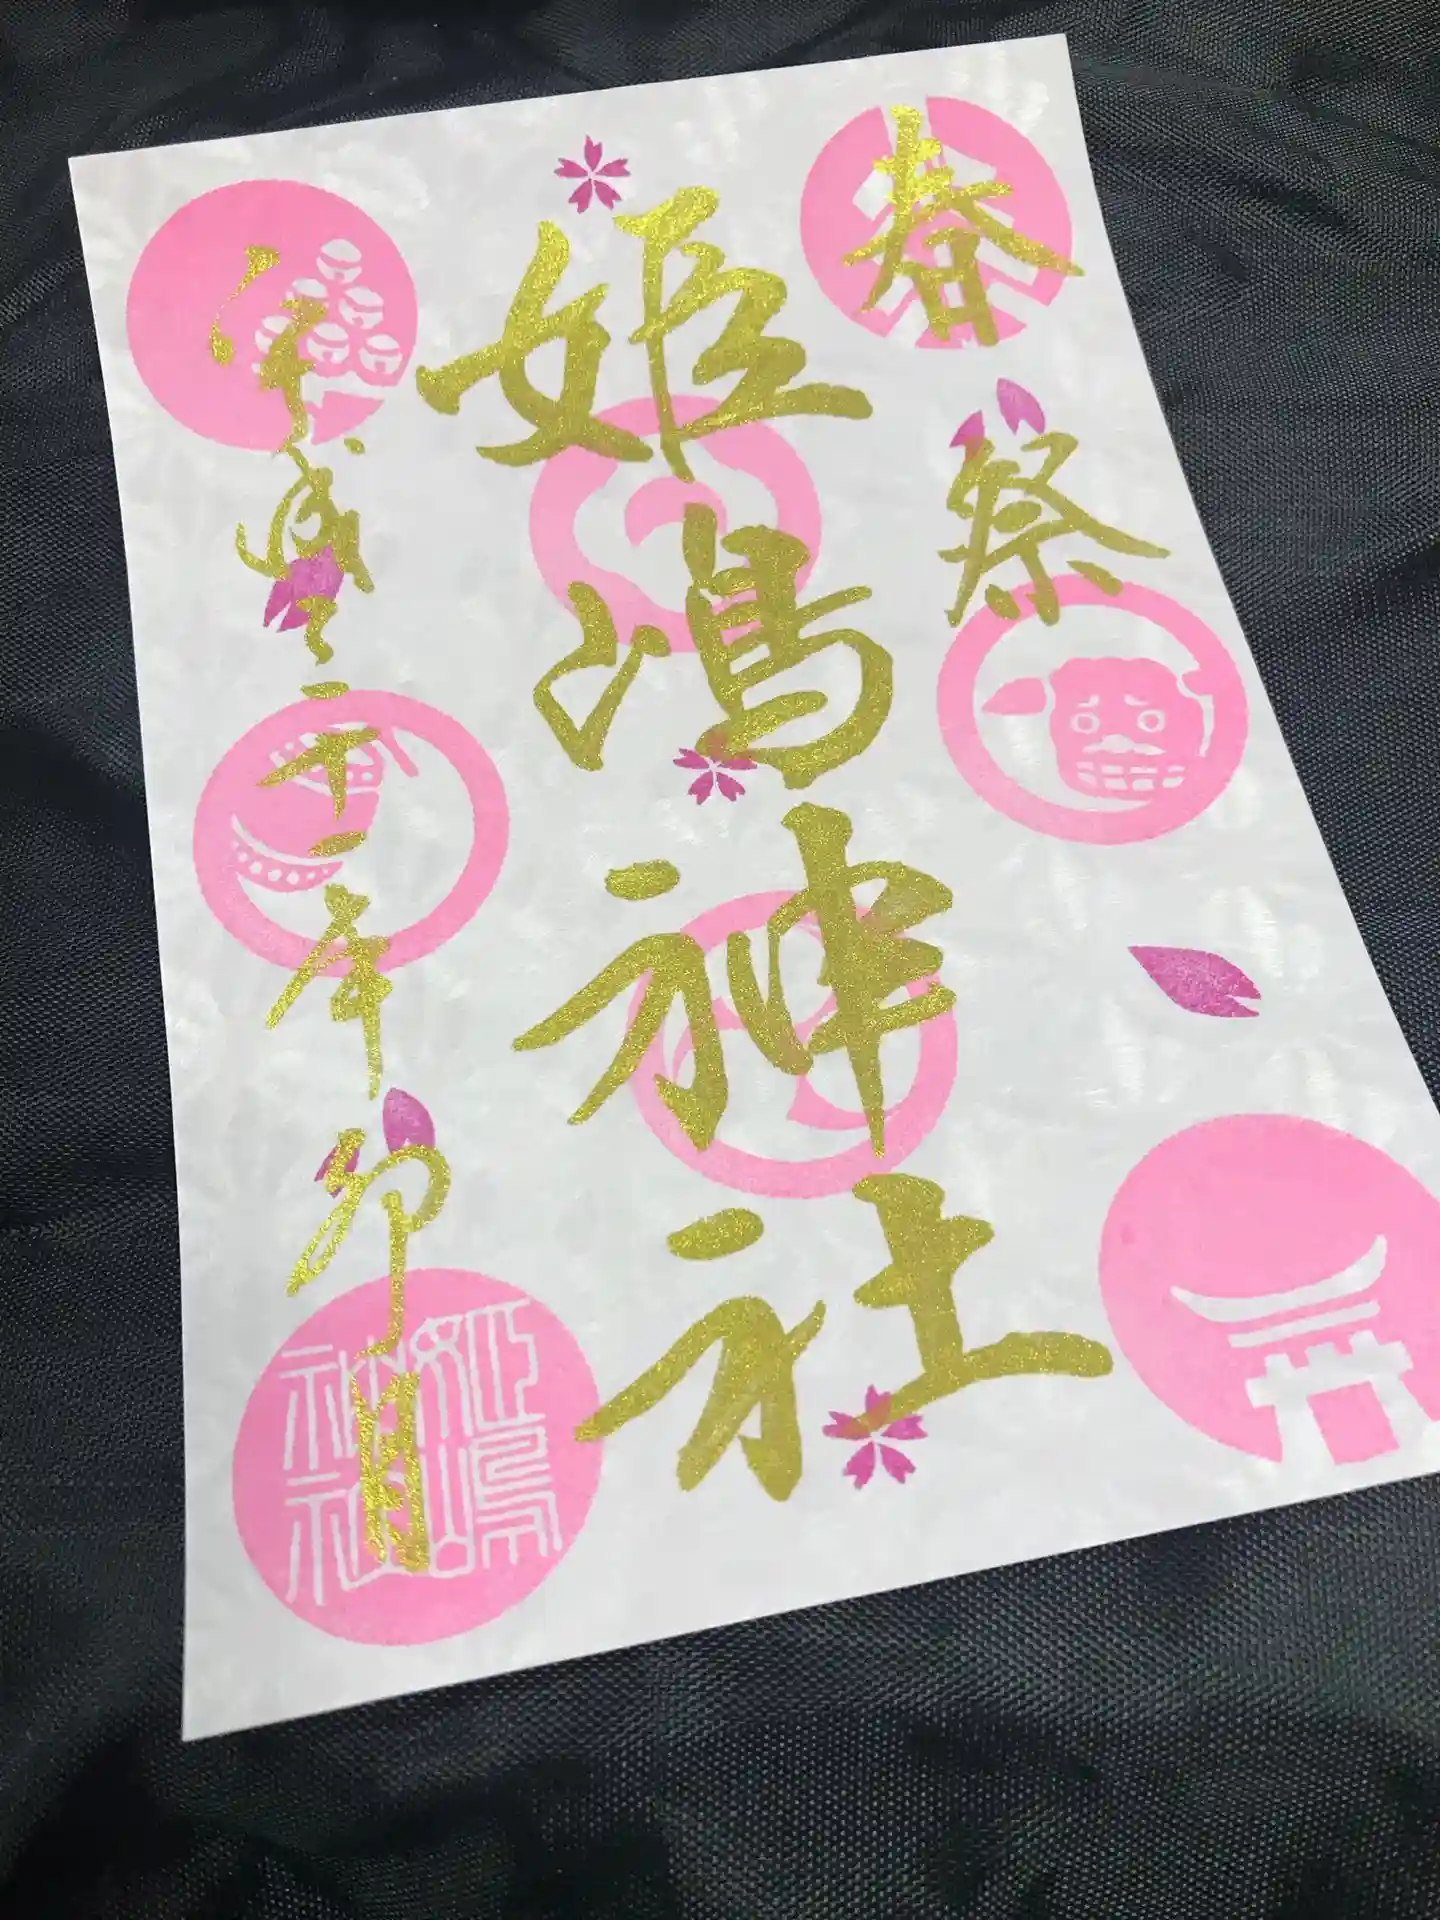 春祭
姫嶋神社
平成三十一年卯月
姫嶋
神社